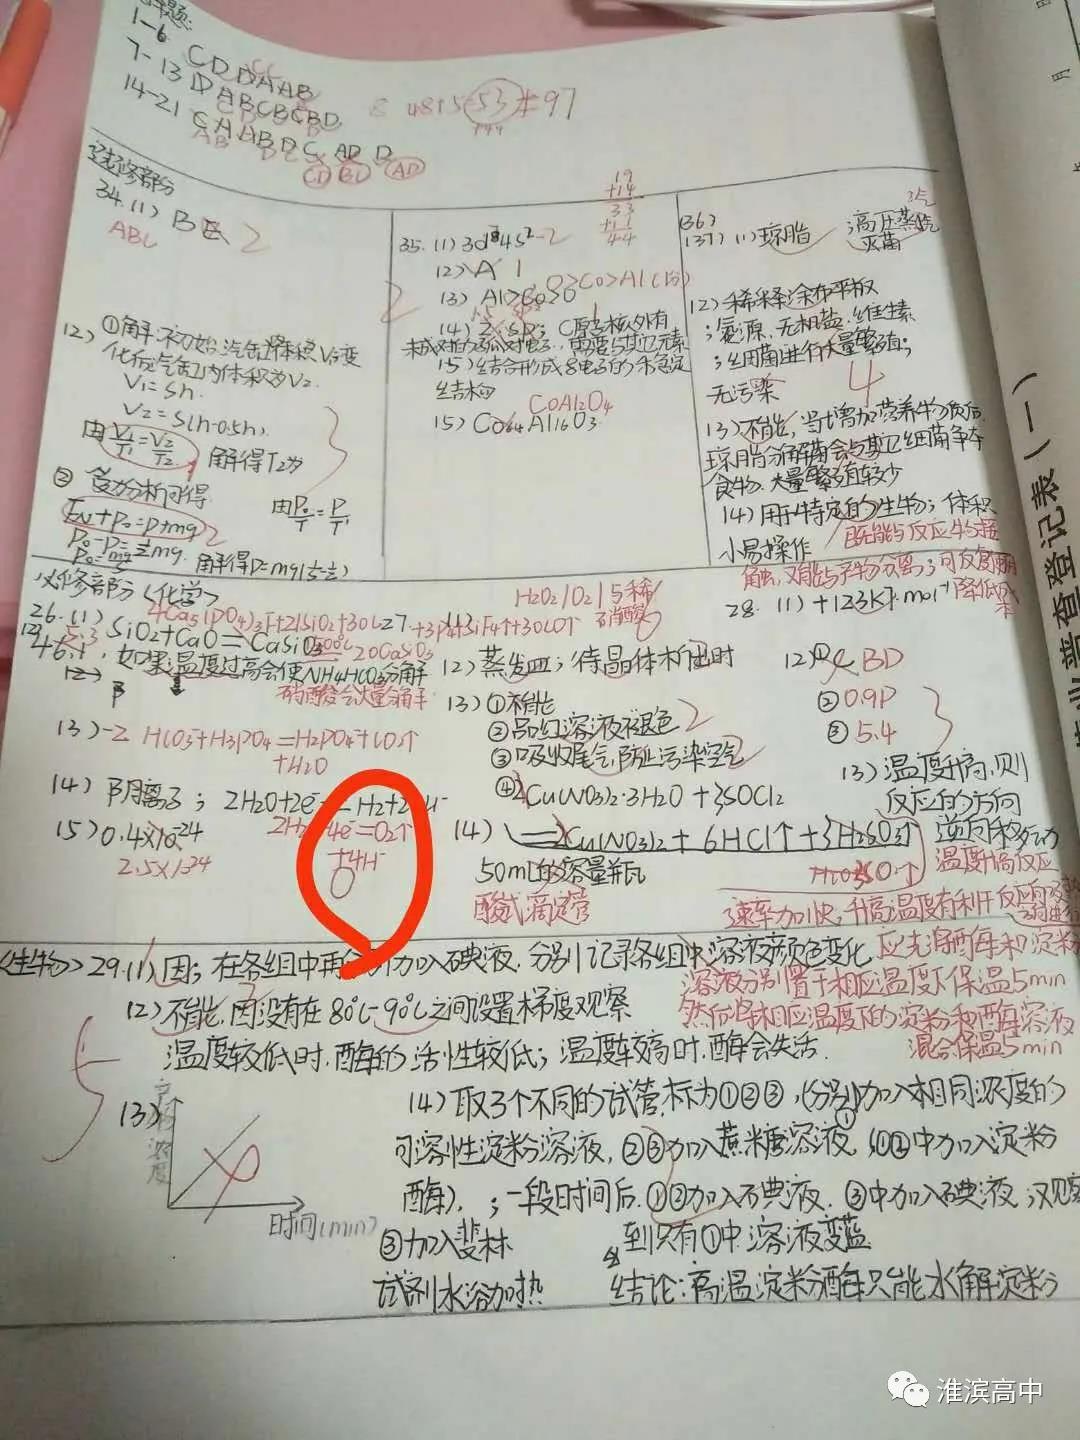 1-6 CDDAAB
7-13 DABCBCBD
14-21 CAABDC AD D
48+5=53 ≠97
+44
CD BC AD
选修部分
34.(1) BE 2
ABC
19
+14
33
+11
44
35.(1) 3d⁸4s² 2
(2) A 1
(3) Al>Co>O
O>Co>Al
(5) 结合形成8电子的稳定
结构
CoAl2O4
(5) Co64Al16O3
(2) ①解:初始,汽缸体积V1,变
化后汽缸内体积为V2.
V1=Sh.
V2=S(h-0.5h).
由V1/T1=V2/T2 解得T2为
② 受力分析可得 由P0/T=P/T'
FN+P0=P+mg
(36)
(37) (1) 琼脂 ;高压蒸汽
灭菌
(2) 稀释涂布平板
;氮源、无机盐、维生素
;细菌进行大量繁殖;
无污染 4
(3) 不能,当增加营养物质后
琼脂分解菌会与其它细菌争夺
食物,大量繁殖较少
(4) 用于特定的生物;体积
小易操作
既能与反应物接
触,又能与产物分离;可反复利用
降低成本
必修部分(化学)
26.(1) SiO2+CaO=CaSiO3
5:3
46.1 ,如果温度过高会使NH4HCO3分解
硝酸会大量分解
(3) -2 HCO3⁻+H3PO4=H2PO4⁻+CO2↑
+H2O
(4) 阴离子; 2H2O+2e⁻=H2+2OH⁻
+4H
(5) 0.4×10⁻24
H2O2/O2/与稀
硝酸
(2) 蒸发皿;待晶体析出时
(3) ①不能
②品红溶液褪色 2
③吸收尾气,防止污染空气
④ Cu(NO3)2·3H2O+3SOCl2
(4) =Cu(NO3)2+6HCl↑+3H2SO3↑
50mL的容量瓶
酸式滴定管
28. (1) +123kJ·mol⁻1
(2) ① BD
② 0.9P
③ 5.4
(3) 温度升高,则
反应的方向
逆向移动
温度升高反应
速率加快,升高温度有利于反应向
(生物) 29.(1) 因; 在各组中再分别加入碘液.分别记录各组中溶液颜色变化
应先将酶和淀粉
溶液分别置于相应温度下保温5min
然后将相应温度下的淀粉和酶溶液
混合保温5min
(2) 不能,因没有在80℃-90℃之间设置梯度观察
温度较低时,酶的活性较低;温度较高时,酶会失活.
5
(3)
浓度
时间(min)
(4) 取3个不同的试管,标为①②③,(分别)加入相同浓度的
可溶性淀粉溶液,②③加入蔗糖溶液,(①②中加入淀粉
酶),;一段时间后.①②加入碘液.③中加入碘液;观察
③加入斐林
到只有①中溶液变蓝
试剂水浴加热
结论:高温淀粉酶只能水解淀粉
作业普查登记表(一)
月
淮滨高中